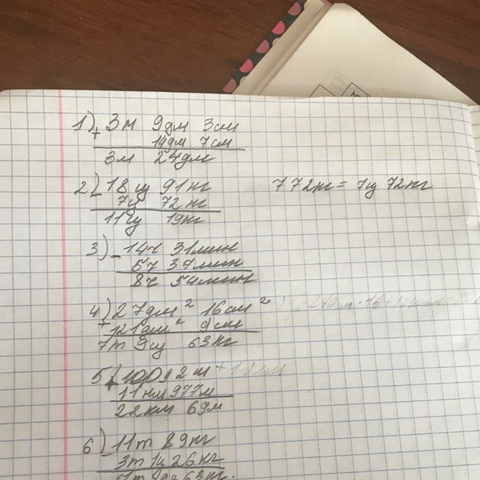 1) + 3м 9дм 3см
14дм 7см
3м 24дм
2) - 18ц 91кг 772кг = 7ц 72кг
7ц 72кг
11ц 19кг
3) - 14ч 31мин
5ч 37мин
8ч 54мин
4) 27дм² 16см²
+ 121дм² 9см
7т 9ц 63кг
5) 2м
11км 977м
22км 69м
6) - 11т 89кг
3т 1ц 26кг
63кг.